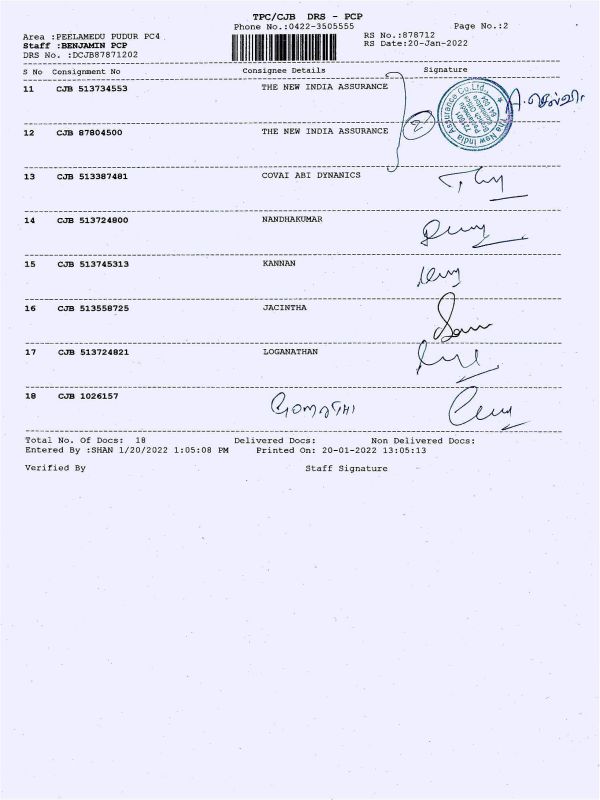 TPC/CJB DRS - PCP
Phone No.:0422-3505555 Page No.:2
Area :PEELAMEDU PUDUR PC4 RS No.:878712
Staff :BENJAMIN PCP RS Date:20-Jan-2022
DRS No. :DCJB87871202
S No Consignment No Consignee Details Signature
11 CJB 513734553 THE NEW INDIA ASSURANCE
2
12 CJB 87804500 THE NEW INDIA ASSURANCE
13 CJB 513387481 COVAI ABI DYNANICS
14 CJB 513724800 NANDHAKUMAR
15 CJB 513745313 KANNAN
16 CJB 513558725 JACINTHA
17 CJB 513724821 LOGANATHAN
18 CJB 1026157 GOMATHI
Total No. Of Docs: 18 Delivered Docs: Non Delivered Docs:
Entered By :SHAN 1/20/2022 1:05:08 PM Printed On: 20-01-2022 13:05:13
Verified By Staff Signature
The New India Assurance Co.Ltd.,